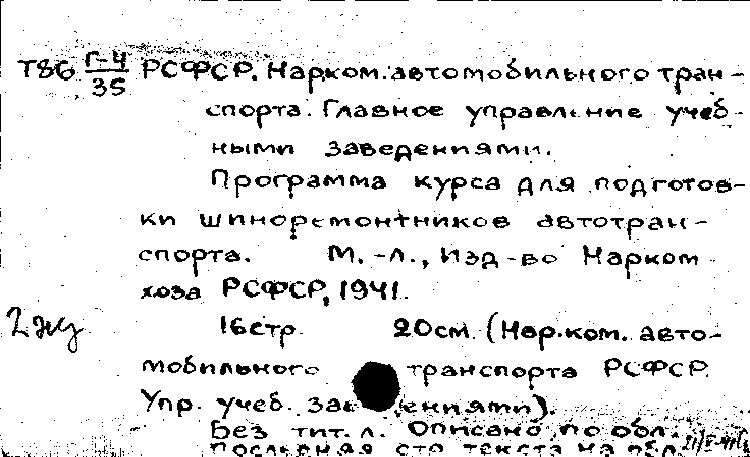 Т86 Г-4 РСФСР. Нарком.автомобильного тран-
35
спорта. Главное управление учеб-
ными заведениями.
Программа курса для подготов-
ки шиноремонтников автотран-
спорта. М.-Л., Изд-во Нарком
хоза РСФСР, 1941.
16стр. 20см. (Нар.ком. авто-
мобильного транспорта РСФСР.
Упр. учеб. ениями).
Без тит. л. Описано по обл.
последняя стр текста на обл.